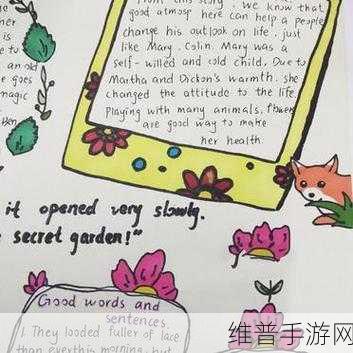 From this story . we know that
good atmosp here can help a people
change his outlook on life . just
like Mary . Colin. Mary was a
self-willed and cold child. Due to
Martha and Dickon's warmth. she
changed the attitude to the life.
Playing with many animals. flowers
are good way to make
her health
her
is
e to
an old
e goes
magic
Ben
it opened very slowly.
secret garden!"
Good words and
sentences.
1. They looded fuller of lace
than everthis morning, but
维普手游网